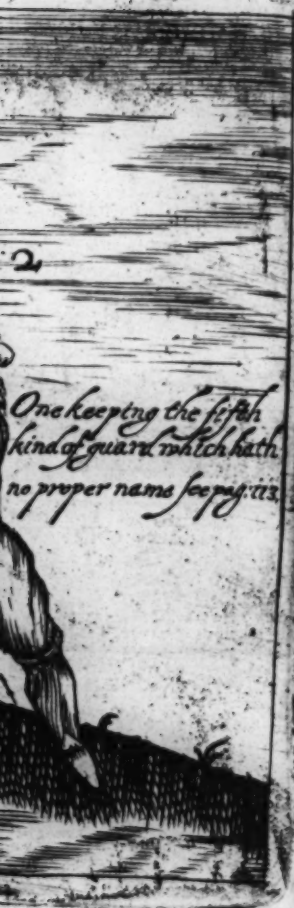 2
One keeping the fifth
kind of guard which hath
no proper name see pag: 113